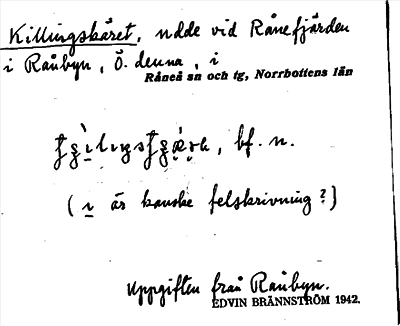 Killingskäret, udde vid Rånefjärden
i Rånbyn, Ö. denna, i
Råneå sn och tg, Norrbottens län
bf. n.
( ı är kanske felskrivning?)
Uppgiften från Rånbyn.
EDVIN BRÄNNSTRÖM 1942.